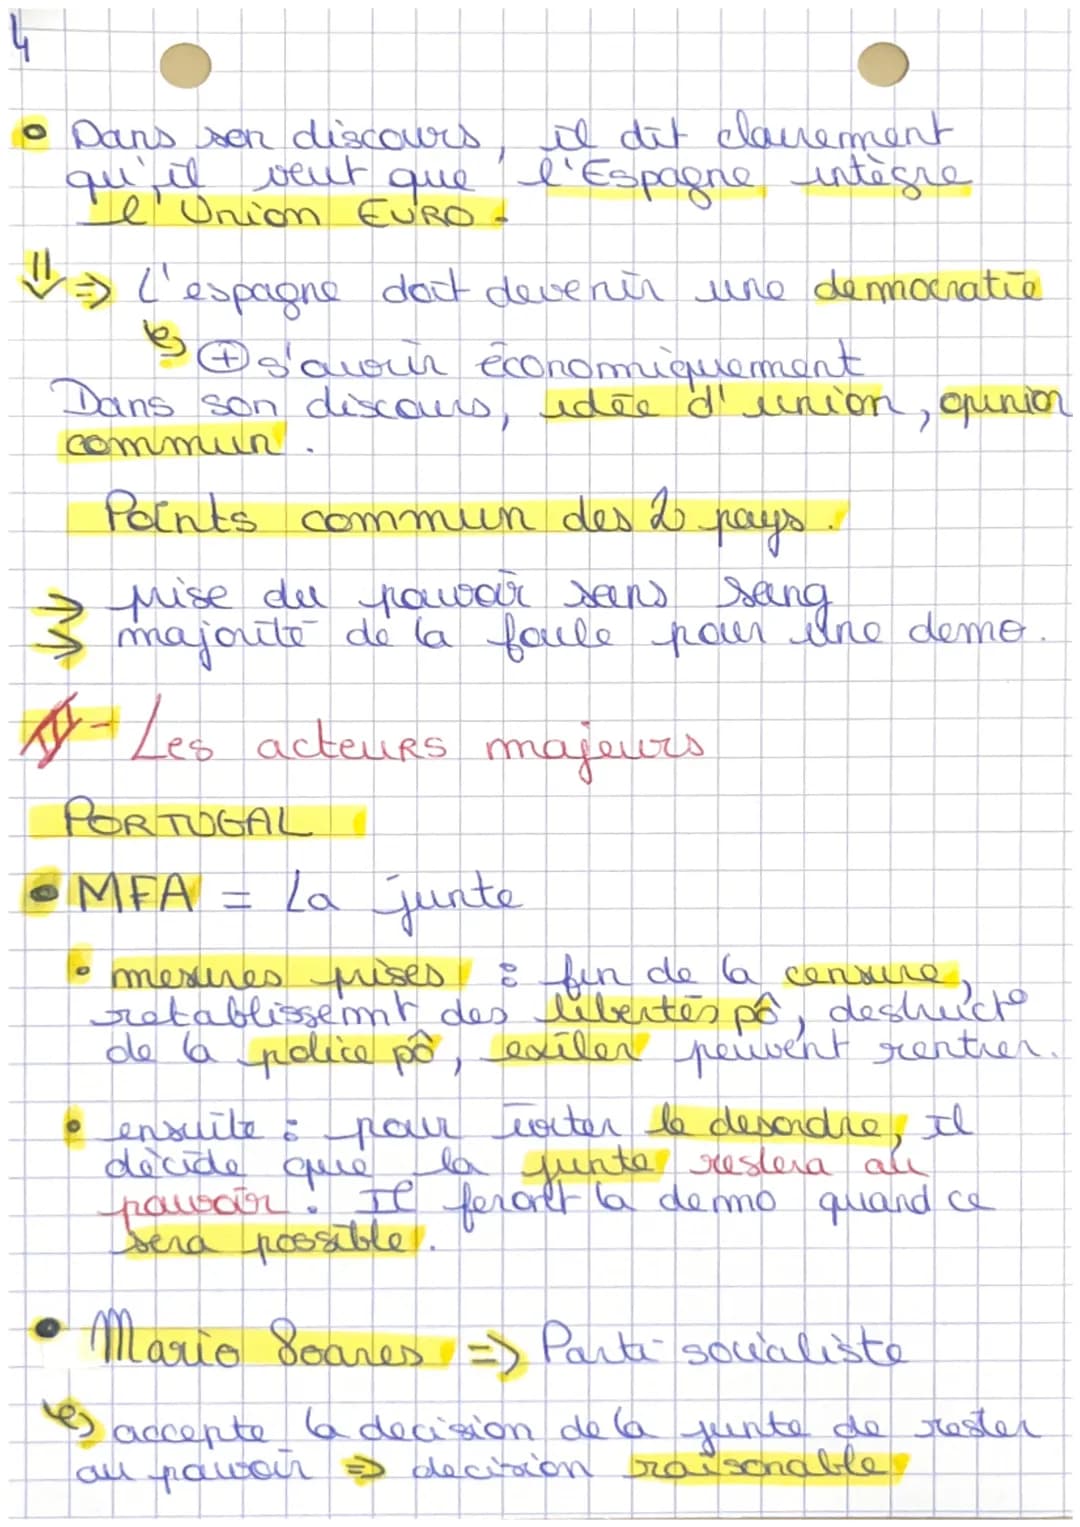 4
• Dans son discours, il dit clairement
qu'il veut que l'Espagne intègre
l'Union EURO.
⇓ ⇒ L'espagne doit devenir une democratie
↳ ⊕ s'ouvrir économiquement
Dans son discours, idée d'union, opinion
commun.
Points commun des 2 pays.
→ prise du pouvoir sans sang
→ majorité de la foule pour une demo.
II- Les acteurs majeurs
PORTUGAL
• MFA = La junte
• mesures prises : fin de la censure,
retablissemnt des libertés pô, destructº
de la police pô, exiler peuvent rentrer.
• ensuite : pour éviter le desordre, Il
décide que la junte restera au
pouvoir. Il feront la demo quand ce
sera possible.
• Mario Soares ⇒ Parti socialiste
↳ accepte la decision de la junte de rester
au pouvoir ⇒ decision raisonable